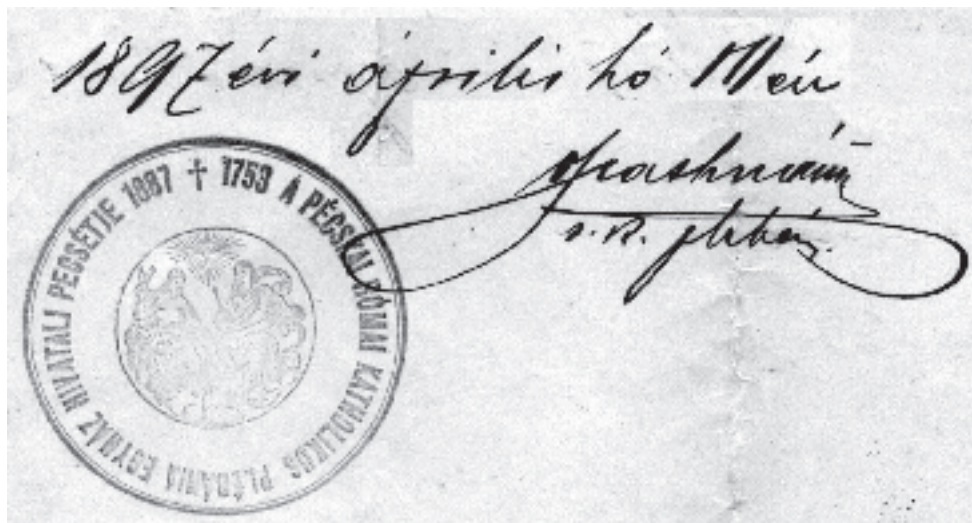 1897 évi április hó 11 én
r. k. plébános
1753 A PÉCSKAI RÓMAI KATHOLIKUS PLÉBÁNIA EGYHÁZ HIVATALI PECSÉTJE 1887